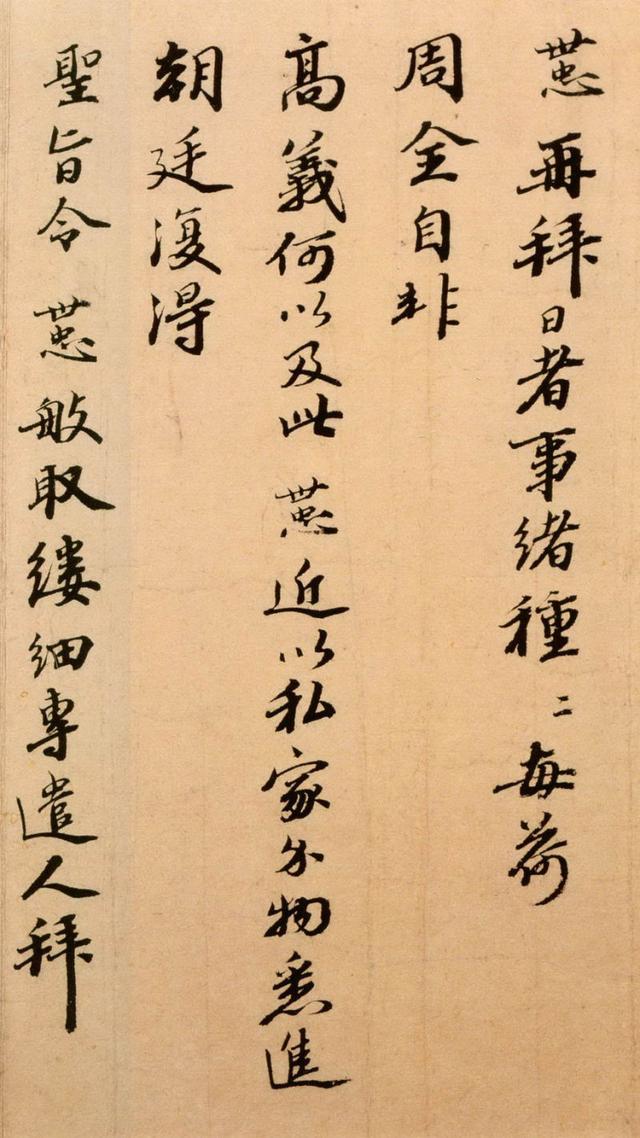 世忠再拜日者事緒種〻每荷
周全自非
高義何以及此世忠近以私家分物悉進
朝廷復得
聖旨令世忠敏取縷細專遣人拜